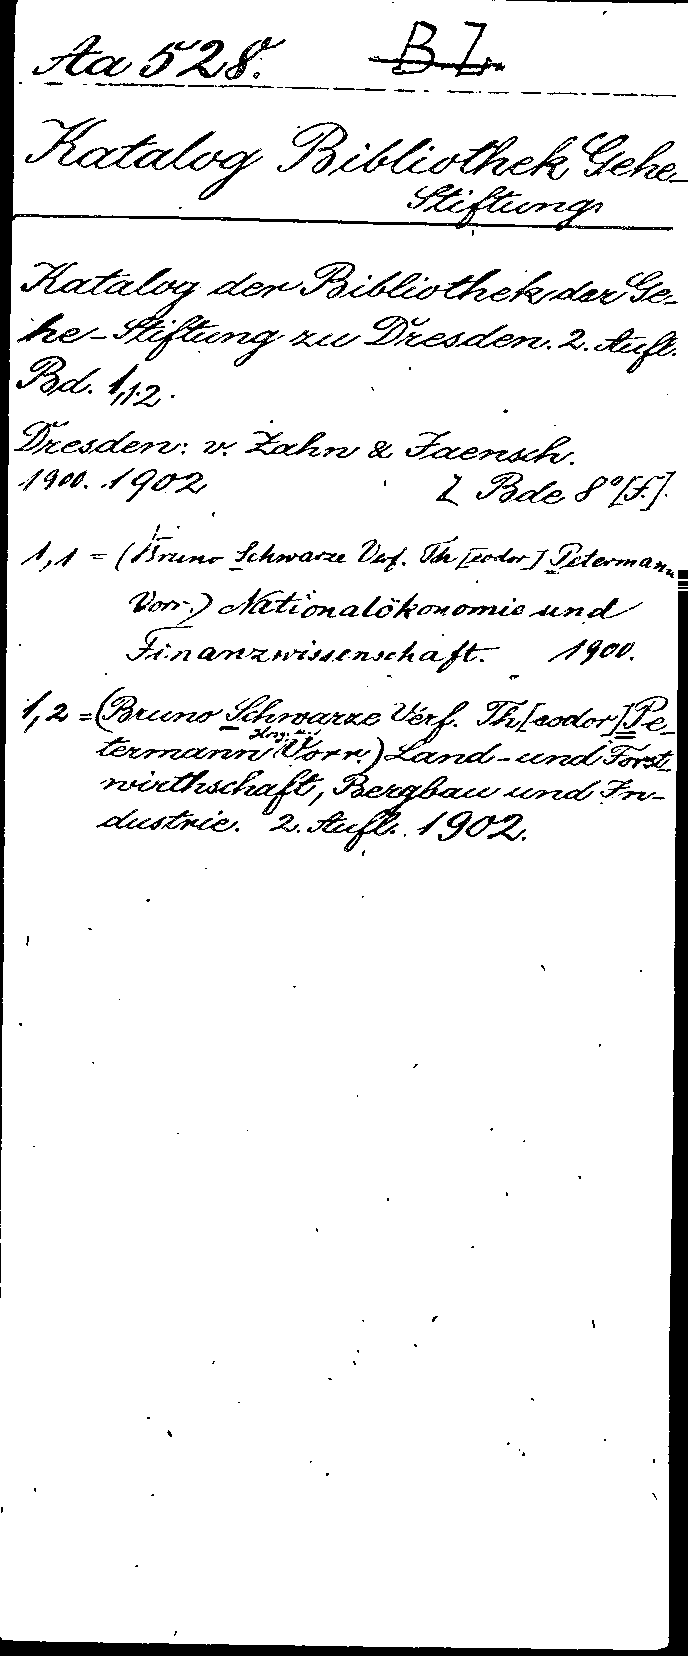 Aa 528. B.Z.
Katalog Bibliothek Gehe-
Stiftung
Katalog der Bibliothek der Ge-
he-Stiftung zu Dresden. 2. Aufl.
Bd. 1,1.2.
Dresden: v. Zahn & Jaensch.
1900. 1902 2 Bde 8° [F].
1,1 = (Bruno Schwarze Verf. Th[eodor] Petermann
Vorr.) Nationalökonomie und
Finanzwissenschaft. 1900.
1,2 = (Bruno Schwarze Verf. Th[eodor] Pe-
termann Hrsg. u. Vorr.) Land- und Forst-
wirthschaft, Bergbau und In-
dustrie. 2. Aufl. 1902.